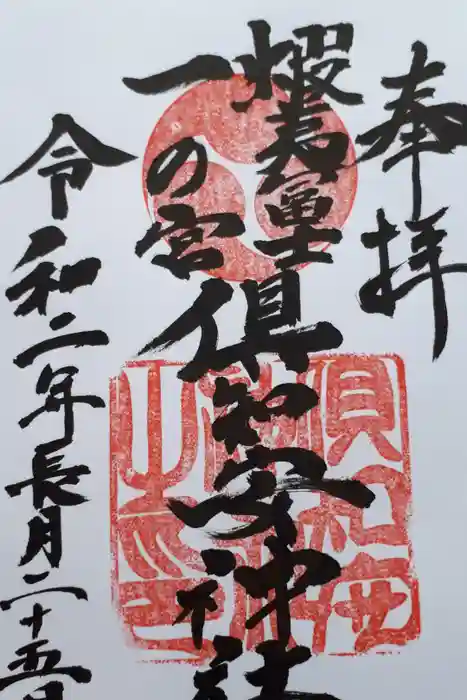 奉拝
蝦夷冨士
一の宮
倶知安神社
令和二年長月二十五日
倶知安
神社
之印